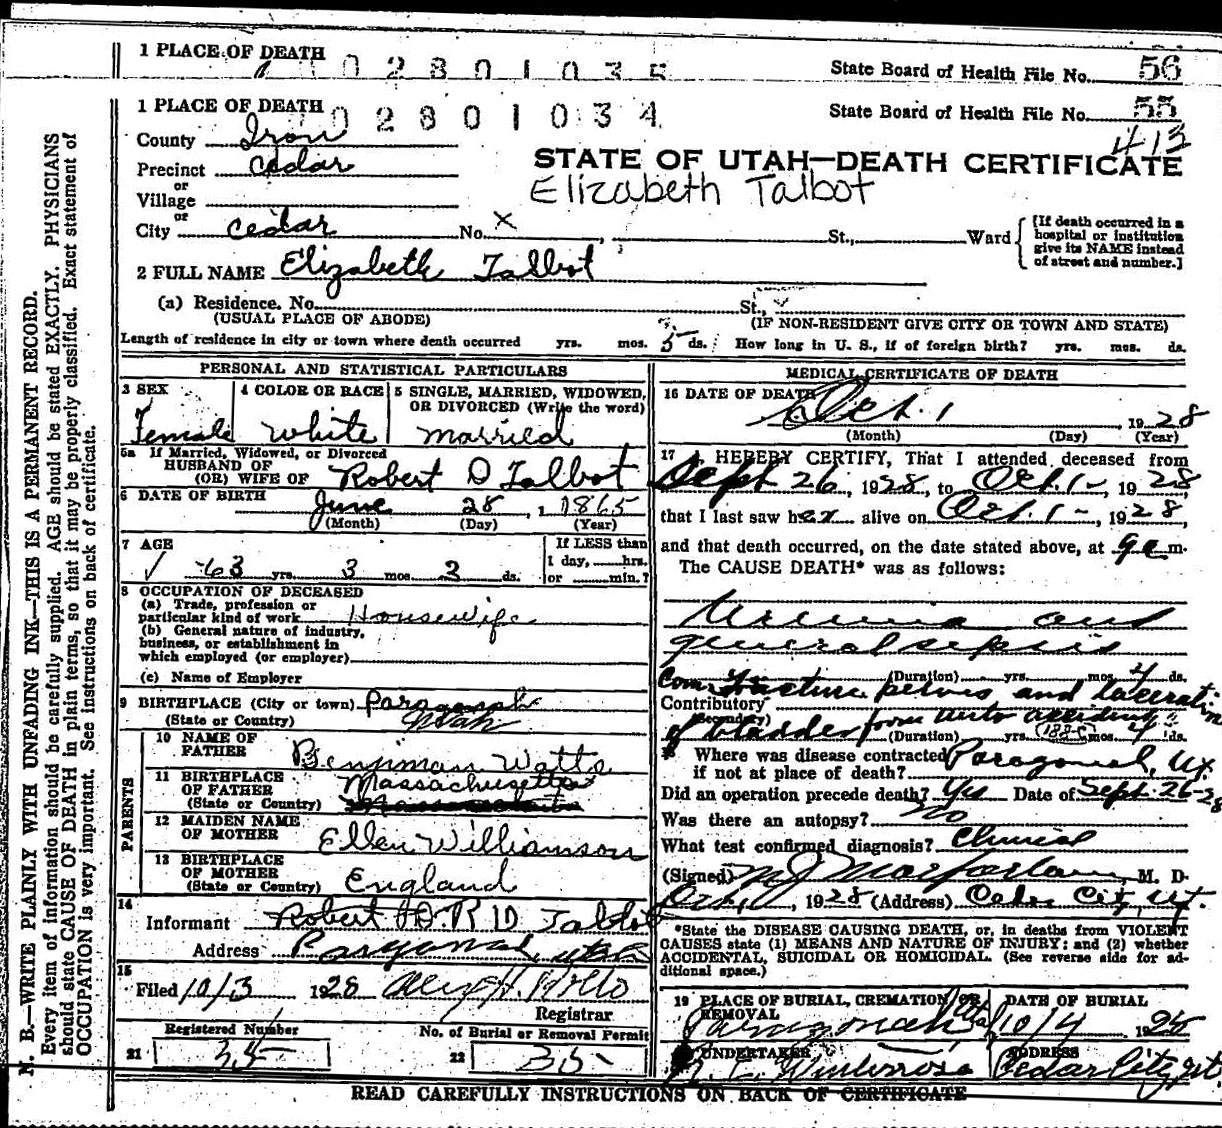 1 PLACE OF DEATH 02801035 State Board of Health File No. 56
1 PLACE OF DEATH 02801034 State Board of Health File No. 55
413
County Iron
Precinct Cedar
STATE OF UTAH—DEATH CERTIFICATE
Elizabeth Talbot
or
Village
or
City Cedar No. X St., Ward {[If death occurred in a hospital or institution give its NAME instead of street and number.]
2 FULL NAME Elizabeth Talbot
(a) Residence. No. St.,
(USUAL PLACE OF ABODE) (IF NON-RESIDENT GIVE CITY OR TOWN AND STATE)
Length of residence in city or town where death occurred yrs. mos. 5 ds. How long in U. S., if of foreign birth? yrs. mos. ds.
PERSONAL AND STATISTICAL PARTICULARS
3 SEX 4 COLOR OR RACE 5 SINGLE, MARRIED, WIDOWED,
OR DIVORCED (Write the word)
Female White Married
5a If Married, Widowed, or Divorced
HUSBAND OF
(OR) WIFE OF Robert D Talbot
6 DATE OF BIRTH June 28, 1865
(Month) (Day) (Year)
7 AGE If LESS than
1 day, hrs.
63 yrs. 3 mos. 3 ds. or min.?
8 OCCUPATION OF DECEASED
(a) Trade, profession or
particular kind of work Housewife
(b) General nature of industry,
business, or establishment in
which employed (or employer)
(c) Name of Employer
9 BIRTHPLACE (City or town) Paragonah
(State or Country) Utah
PARENTS
10 NAME OF
FATHER Benjiman Watts
11 BIRTHPLACE
OF FATHER Massachusetts
(State or Country)
12 MAIDEN NAME
OF MOTHER Ellen Williamson
13 BIRTHPLACE
OF MOTHER
(State or Country) England
14
Informant Robert D. Talbot
Address Paragonah, Utah
15
Filed 10/3 1928
Registrar
Registered Number No. of Burial or Removal Permit
21 35 22 35
MEDICAL CERTIFICATE OF DEATH
16 DATE OF DEATH Oct. 1 1928
(Month) (Day) (Year)
17 I HEREBY CERTIFY, That I attended deceased from
Sept 26, 1928, to Oct. 1-, 1928
that I last saw her alive on Oct. 1-, 1928,
and that death occurred, on the date stated above, at 9 a m.
The CAUSE DEATH* was as follows:
Uremia and
general sepsis
(Duration) yrs. mos. 4 ds.
Com. fracture pelvis and laceration
Contributory
(Secondary)
of bladder from auto accident
(Duration) yrs. (188-C) mos. 4 ds.
18 Where was disease contracted
if not at place of death? Paragonah, Ut.
Did an operation precede death? Yes Date of Sept. 26-28
Was there an autopsy? No
What test confirmed diagnosis? Clinical
(Signed) M J Macfarlane, M. D.
Oct, 1928 (Address) Cedar City, Ut.
*State the DISEASE CAUSING DEATH, or, in deaths from VIOLENT
CAUSES state (1) MEANS AND NATURE OF INJURY; and (2) whether
ACCIDENTAL, SUICIDAL OR HOMICIDAL. (See reverse side for ad-
ditional space.)
19 PLACE OF BURIAL, CREMATION OR REMOVAL DATE OF BURIAL
Paragonah 10/4 1928
UNDERTAKER ADDRESS
Winterrose Cedar City, Ut.
READ CAREFULLY INSTRUCTIONS ON BACK OF CERTIFICATE
N. B.—WRITE PLAINLY WITH UNFADING INK—THIS IS A PERMANENT RECORD.
Every item of information should be carefully supplied. AGE should be stated EXACTLY. PHYSICIANS
should state CAUSE OF DEATH in plain terms, so that it may be properly classified. Exact statement of
OCCUPATION is very important. See instructions on back of certificate.